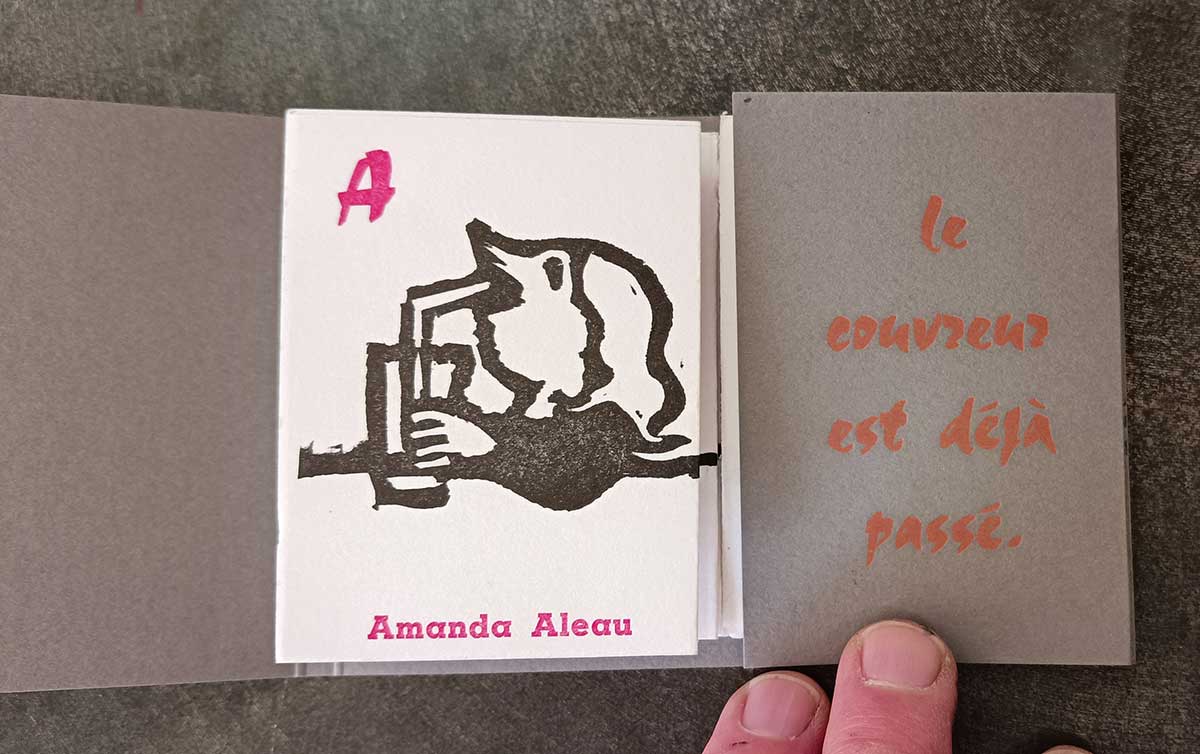 A
Amanda Aleau
le
couvreur
est déjà
passé.